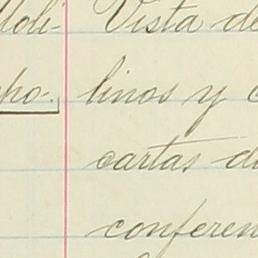 Moli- Vista de
po. linos y
cartas d
conferen